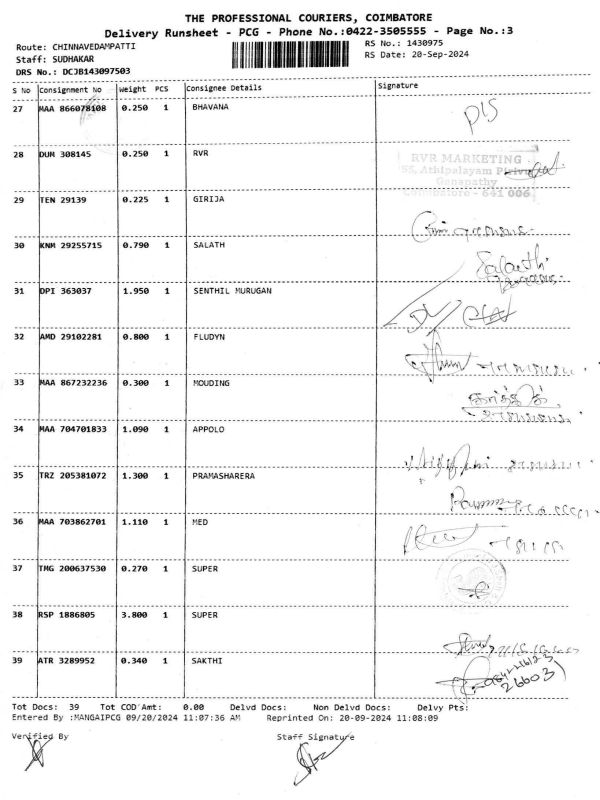 THE PROFESSIONAL COURIERS, COIMBATORE
Delivery Runsheet - PCG - Phone No.:0422-3505555 - Page No.:3
Route: CHINNAVEDAMPATTI RS No.: 1430975
Staff: SUDHAKAR RS Date: 20-Sep-2024
DRS No.: DCJB143097503
S No Consignment No Weight PCS Consignee Details Signature
27 MAA 866078108 0.250 1 BHAVANA
28 DUM 308145 0.250 1 RVR
RVR MARKETING
55, Athipalayam
Ganapathy
Coimbatore - 641 006
29 TEN 29139 0.225 1 GIRIJA
30 KNM 29255715 0.790 1 SALATH
31 DPI 363037 1.950 1 SENTHIL MURUGAN
32 AMD 29102281 0.800 1 FLUDYN
33 MAA 867232236 0.300 1 MOUDING
34 MAA 704701833 1.090 1 APPOLO
35 TRZ 205381072 1.300 1 PRAMASHARERA
36 MAA 703862701 1.110 1 MED
37 TMG 200637530 0.270 1 SUPER
38 RSP 1886805 3.800 1 SUPER
39 ATR 3289952 0.340 1 SAKTHI
26603
Tot Docs: 39 Tot COD Amt: 0.00 Delvd Docs: Non Delvd Docs: Delvy Pts:
Entered By :MANGAIPCG 09/20/2024 11:07:36 AM Reprinted On: 20-09-2024 11:08:09
Verified By Staff Signature